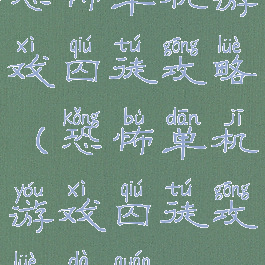 xì qiú tú gōng lüè
戏囚徒攻略
kǒng bù dān jī
（恐怖单机
yóu xì qiú tú gōng
游戏囚徒攻
lüè dà quán